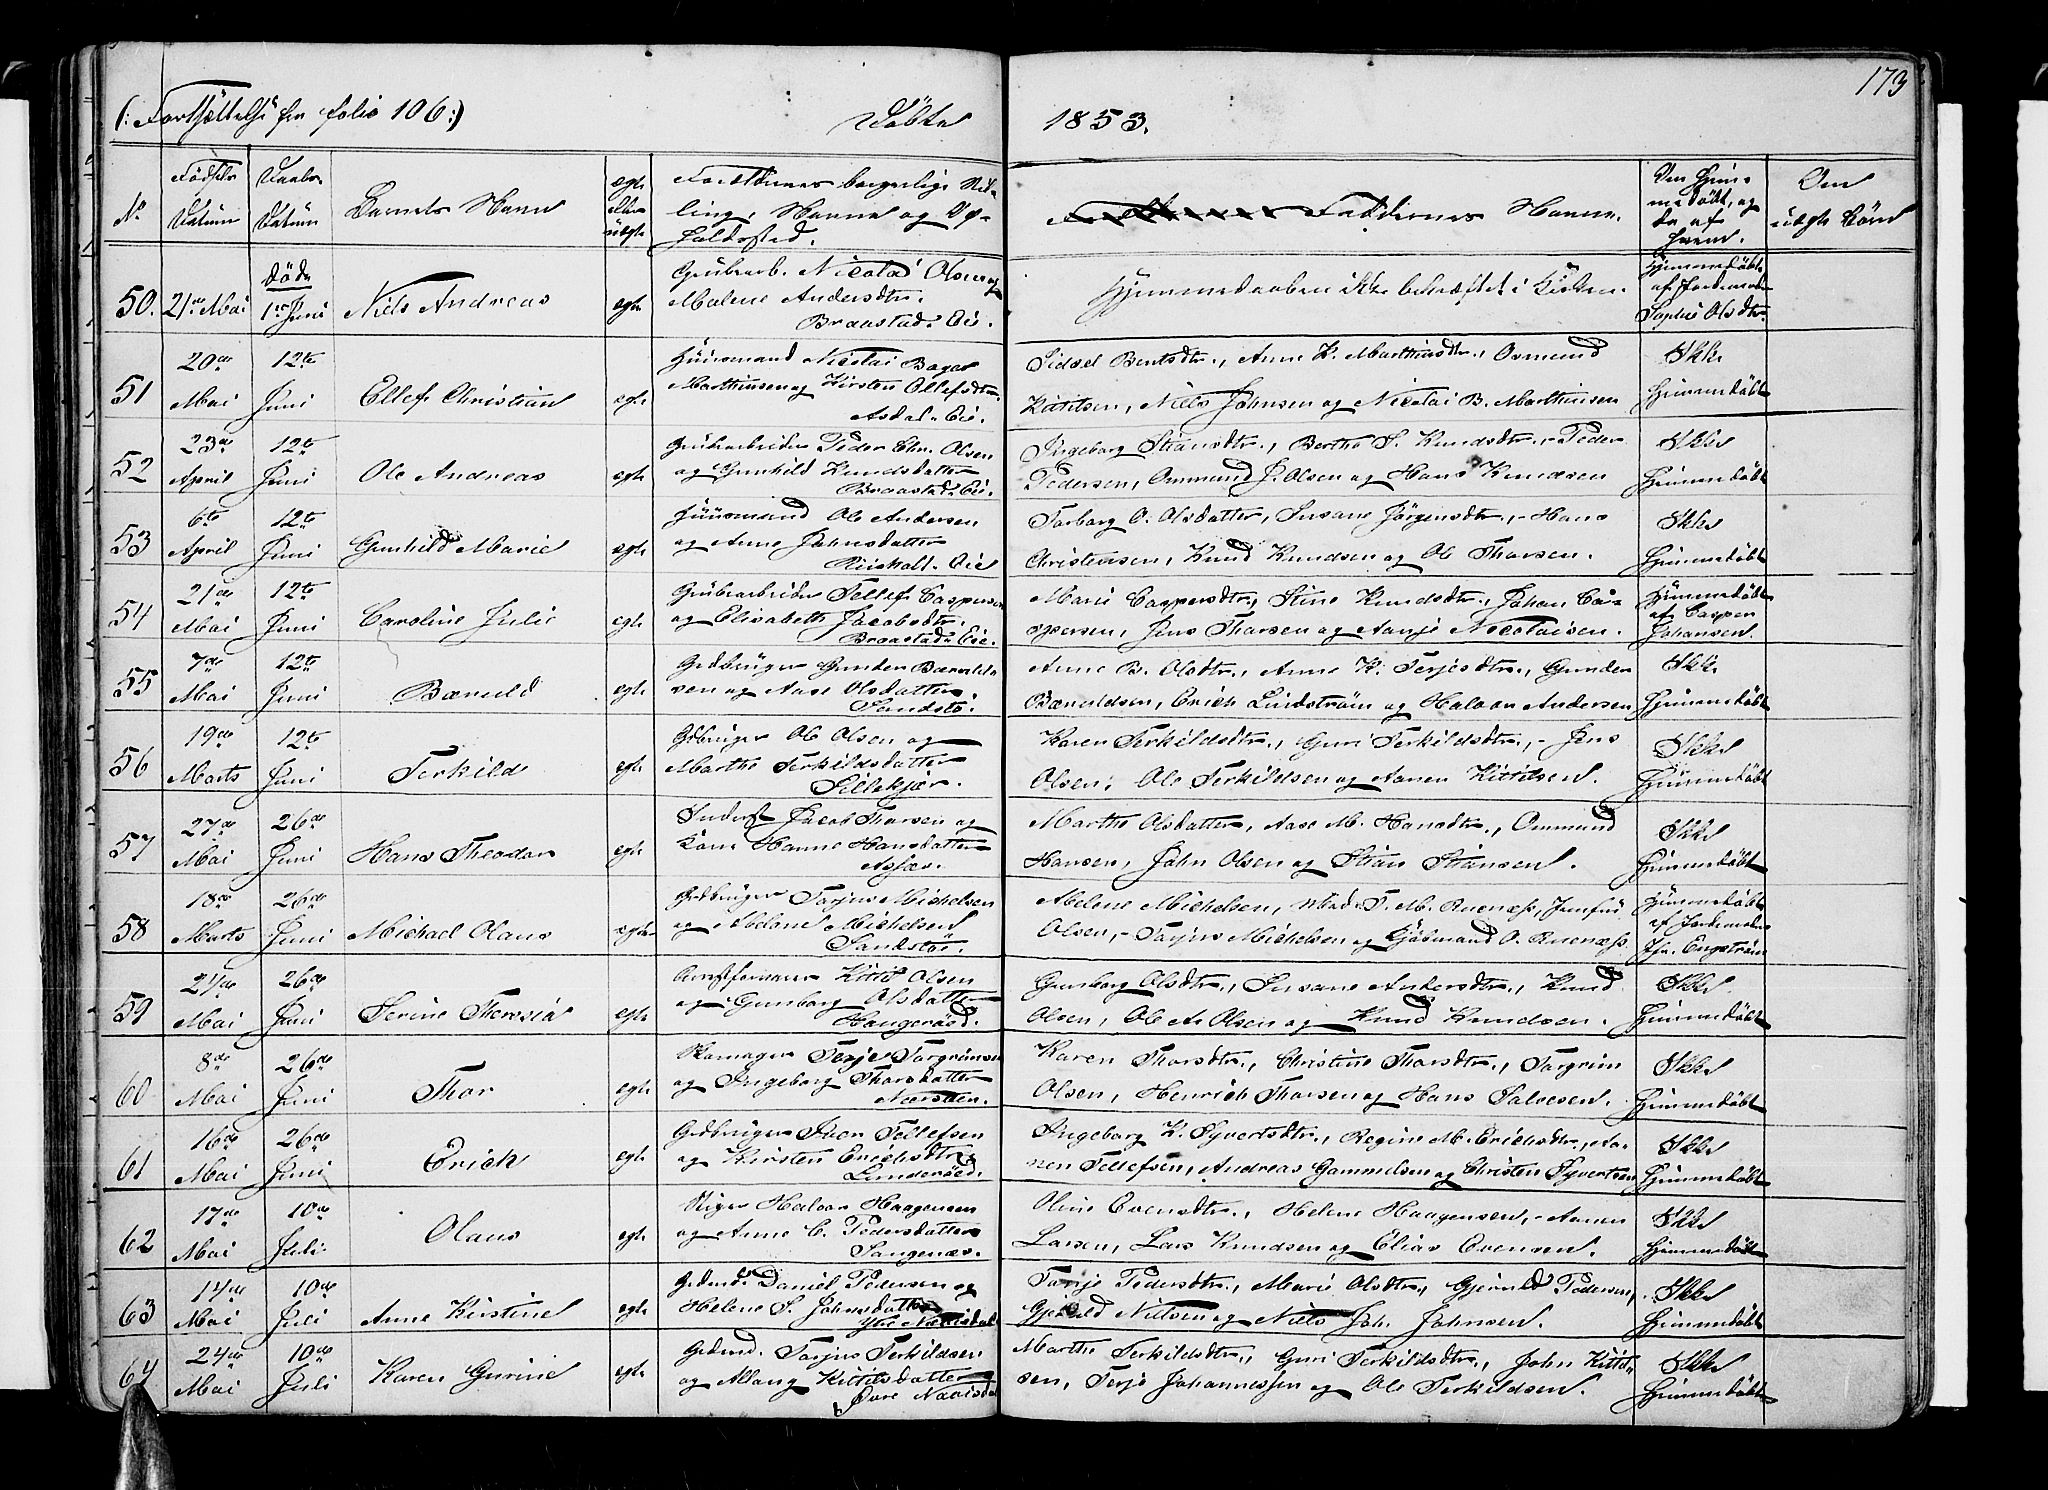 173
(: Fortsættelse fra folio 106 :) Döbte 1853.
No Fødsels Datum Daabs Datum Barnets Navn egte eller uegte Forældrenes borgerlige Stilling, Navne og Opholdssted. Faddernes Navne. Om hjemmedøbt, og da af hvem. Om uegte Børn
50. 21de Mai døde 1ste Juni Niels Andreas egte Grubearb. Nicolai Olsen og
Malene Andersdtr.
Braastad-Eie.
Hjemmedaaben ikke bekræftet i Kirken. Hjemmedøbt af Jordemoder Sophie Olsdtr.
51 20de Mai 12te Juni Ellef Christian egte Huusmand Nicolai Boye
Marthinsen og Kirsten Ellefsdtr.
Asdal-Eie.
Sidsel Bentsdtr., Anne K. Marthinsdtr., Osmund
Kittilsen, Niels Johnsen og Nicolai B. Marthinsen
Ikke Hjemmedøbt
52 23de April 12te Juni Ole Andreas egte Grubearbeider Peder Chr. Olsen
og Gunhild Knudsdatter
Braastad-Eie.
Ingeborg Stiansdtr., Berthe S. Knudsdtr., - Peder
Pedersen, Ommund J. Olsen og Hans Knudsen
Ikke Hjemmedøbt
53 6te April 12te Juni Gunhild Marie egte Huusmand Ole Andersen
og Anne Johnsdatter
Torborg O. Olsdatter, Susane Jörgensdtr., - Hans
Christensen, Knud Knudsen og Ole Thorsen.
Ikke Hjemmedøbt
54 21de Mai 12te Juni Caroline Julie egte Grubearbeider Tellef Caspersen
og Elisabeth Jacobsdtr.
Braastad-Eie.
Marie Caspersdtr., Stine Knudsdtr., Johan Caspersen, Jens Thorsen og Aanje Nicolaisen.
Hjemmedøbt af Casper Johansen.
55 7de Mai 12te Juni Bæruld egte Gdbruger Gunder Bæruldsen og Aase Olsdatter
Sandstø.
Anne B. Olsdtr., Anne K. Terjesdtr., Gunder
Bæruldsen, Erich Lindström og Halvor Andersen
Ikke Hjemmedøbt
56 19de Marts 12te Juni Terkild egte Gdbruger Ole Olsen og
Marthe Terkildsdatter
Karen Terkildsdtr., Guri Terkildsdtr., - Jens
Olsen, Ole Terkildsen og Aanen Kittilsen.
Ikke Hjemmedøbt
57 27de Mai 26de Juni Hans Theodor egte Inderst Jacob Thorsen og
Kone Hanne Hansdatter
Marthe Olsdatter, Aase M. Hansdtr., Ommund
Hansen, John Olsen og Stian Stiansen.
Ikke Hjemmedøbt
58 18de Marts 26de Juni Michael Olaus egte Gdbruger Torjus Michelsen
og Abelone Michelsen
Sandstø.
Abelene Michelsen, Mad. T. M. Ruenæss, Jomfru
Olsen, - Torjus Michelsen og Sjömand O. Ruenæss.
Hjemmedøbt af Jordemoder Engström
59 21de Mai 26de Juni Serine Theresia egte Arrestforvarer Kittil Olsen
og Gunborg Olsdatter
Haugeröed.
Gunborg Olsdtr., Susane Andersdtr., Knud
Olsen, Ole A. Olsen og Knud Knudsen.
Ikke Hjemmedøbt
60 8de Mai 26de Juni Thor egte Skomager Terje Torgrimsen
og Ingeborg Thorsdatter
Næsten.
Karen Thorsdtr., Christine Thorsdtr., Torgrim
Olsen, Henrich Thorsen og Hans Salvesen.
Ikke Hjemmedøbt
61 16de Mai 26de Juni Erich egte Gdbruger Iver Tellefsen
og Kirsten Erichsdtr.
Lunderöed.
Ingeborg K. Syvertsdtr., Regine M. Erichsdtr., Aanen Tellefsen, Andreas Gammelsen og Christen Syvertsen
Ikke Hjemmedøbt
62 17de Mai 10de Juli Olaus egte Halvor Haagensen
og Anne C. Pedersdatter
Sangenæs.
Oline Evensdtr., Helene Haagensen, - Aanen
Larsen, Lars Knudsen og Elias Evensen.
Ikke Hjemmedøbt
63 14de Mai 10de Juli Anne Kirstine egte Gdmd. Daniel Pedersen og
Helene S. Johnsdatter
Ytre Næsdal
Torje Pedersdtr., Marie Olsdtr., Gjeruld Pedersen,
Gjeruld Nielsen og Niels Joh. Johnsen.
Ikke Hjemmedøbt
64 24de Mai 10de Juli Karen Gurine egte Gdmd. Torjus Terkildsen
og Maug Kittilsdatter
Marthe Terkildsdtr., Guri Terkildsdtr., John Kittilsen, Terje Johannessen og Ole Terkildsen.
Ikke Hjemmedøbt